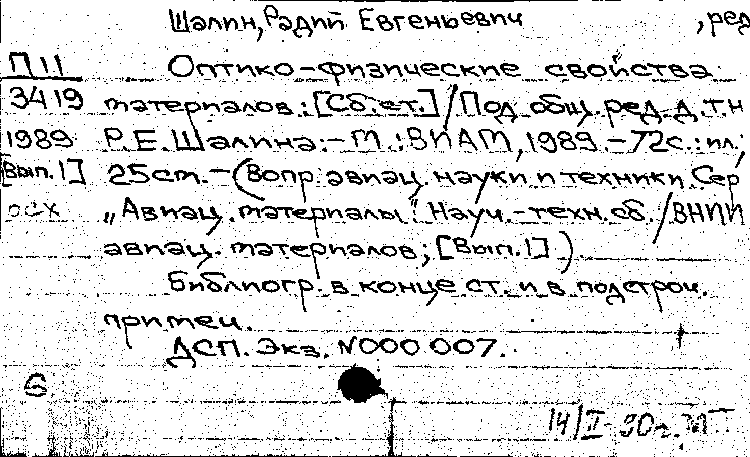 Шалин, Радий Евгеньевич , ред
П 11 Оптико-физические свойства
3419 материалов: [Сб. ст.] / Под общ. ред. д.т.н
1989 Р.Е. Шалина. – М.: ВИАМ, 1989. – 72с.: ил.;
[Вып. 1] 25см. – (Вопр. авиац. науки и техники. Сер
осх „Авиац. материалы": Науч.-техн. сб. / ВНИИ
авиац. материалов; [Вып. 1]).
Библиогр. в конце ст. и в подстроч.
примеч.
ДСП. Экз. N000 007.
6
14/II-90г.